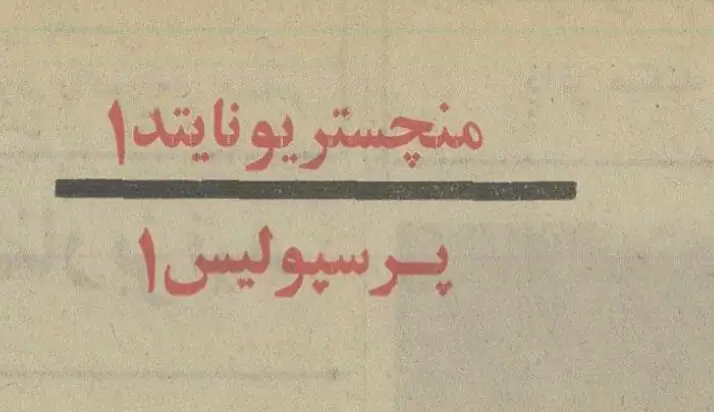 منچستریونایتد۱
پرسپولیس۱